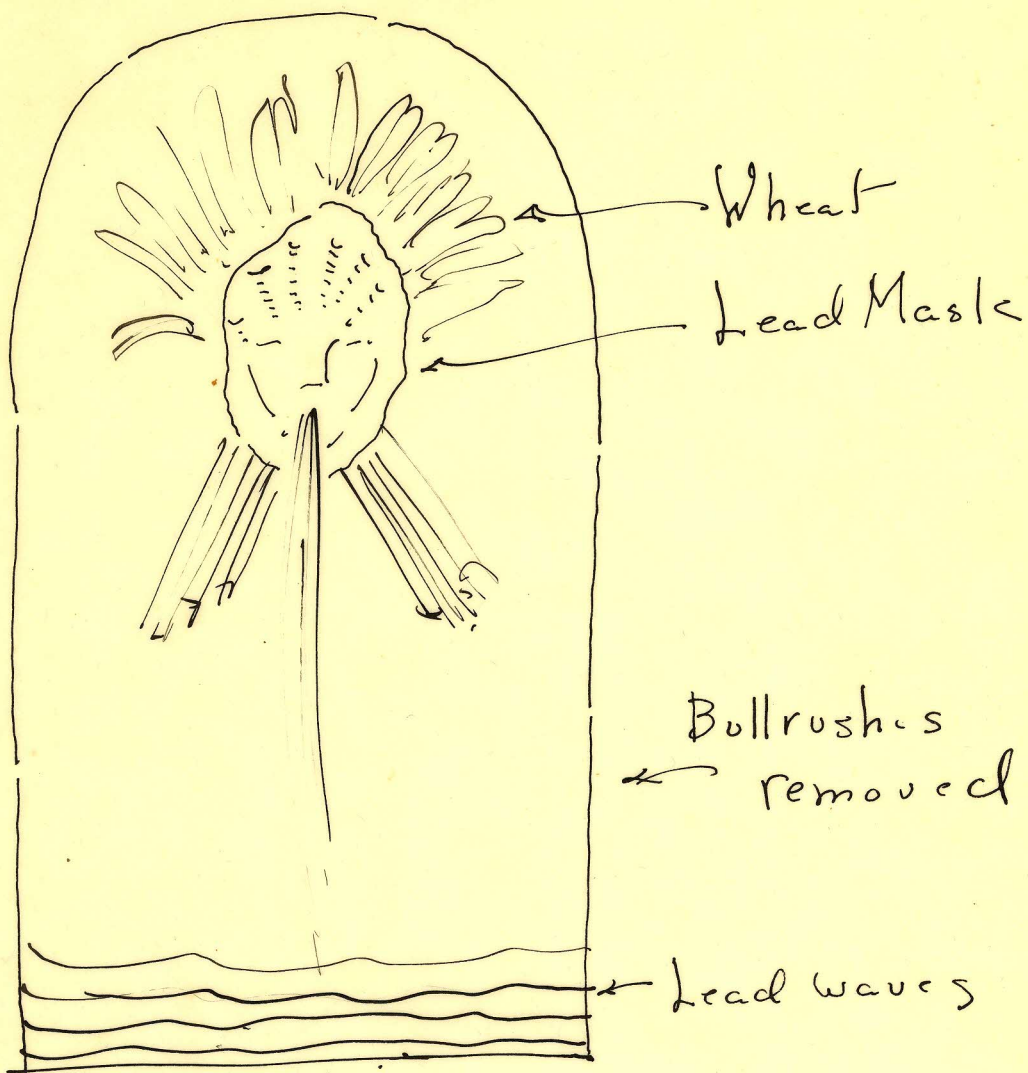 Wheat
Lead Mask
Bullrushes
removed
Lead waves